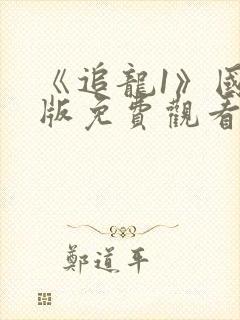 《追龍1》國
版免費觀看
鄭道平